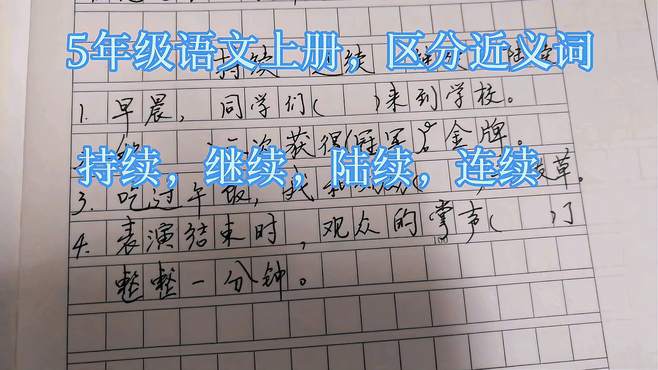 5年级语文上册，区分近义词
持续 连续
1. 早晨，同学们( )来到学校。
次获得冠军 金牌。
持续，继续，陆续，连续
3. 吃过午饭，我 草。
4. 表演结束时，观众的掌声( )了
整整一分钟。